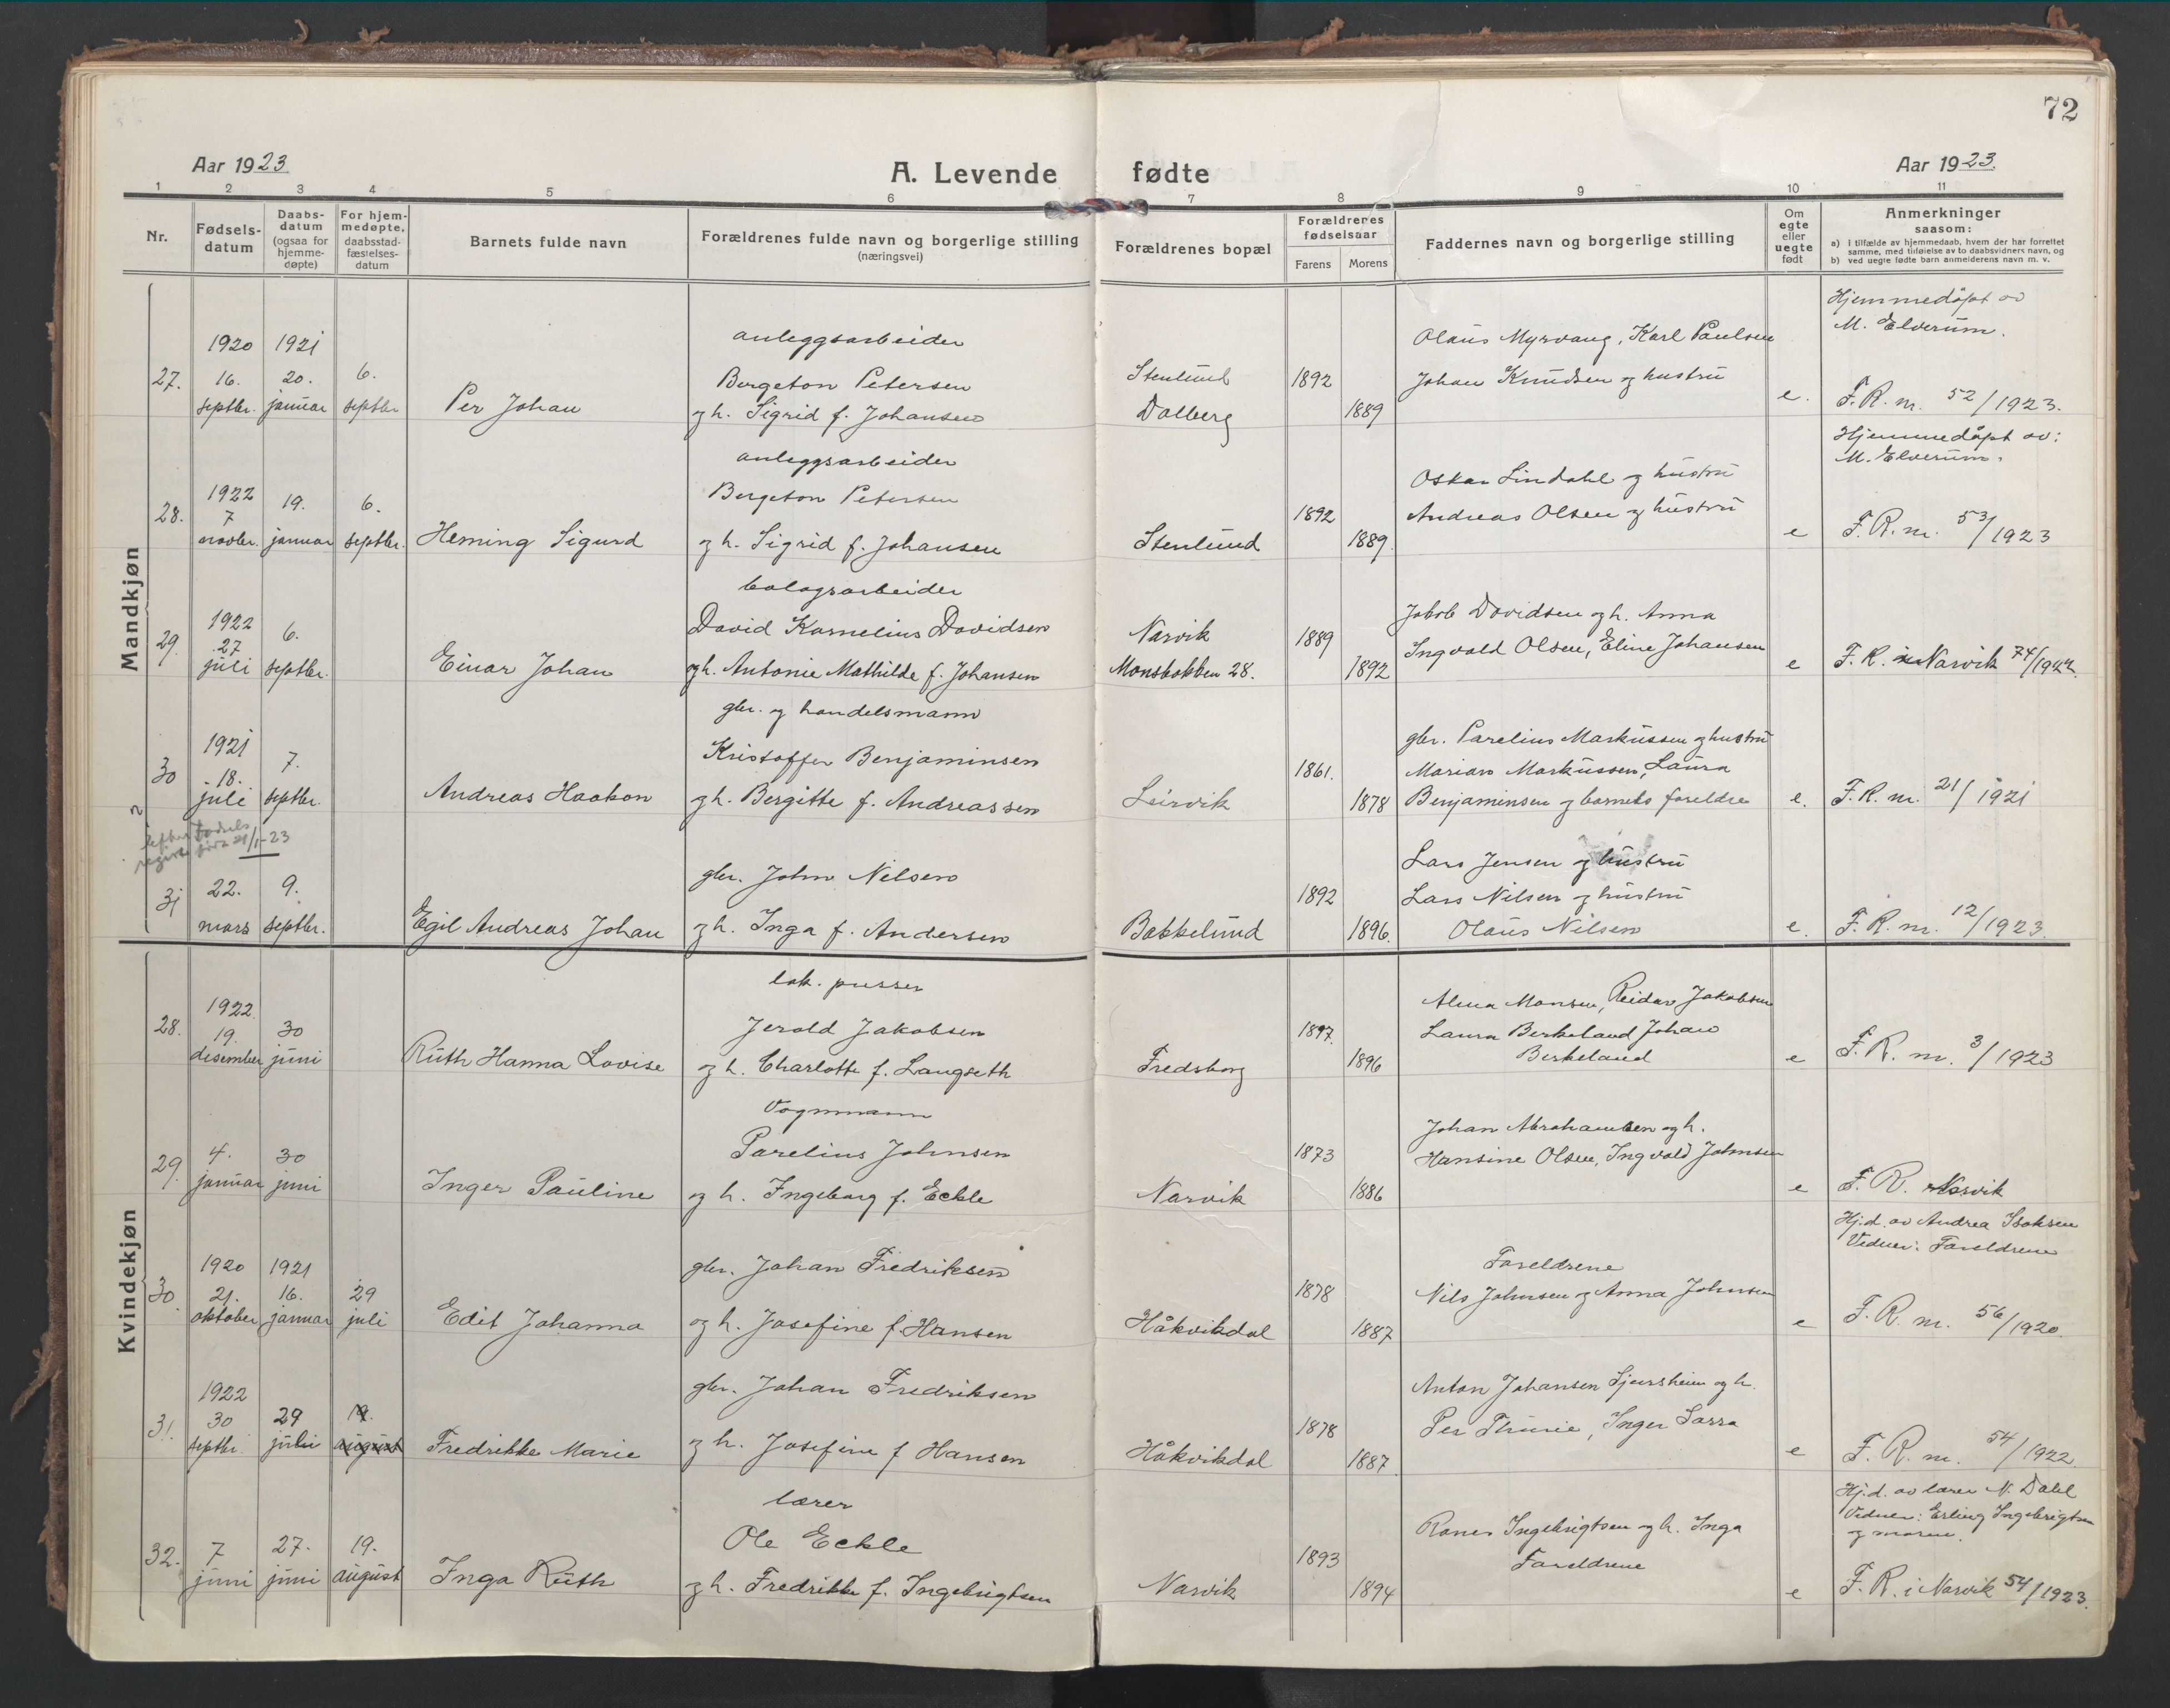 72
Aar 1923.
A. Levende fødte
Aar 1923.
1 2 3 4 5 6 7 8 9 10 11
Nr.
Fødselsdatum
Daabsdatum (ogsaa for hjemmedøpte)
For hjemmedøpte, daabsstadfæstelsesdatum
Barnets fulde navn
Forældrenes fulde navn og borgerlige stilling (næringsvei)
Forældrenes bopæl
Forældrenes fødselsaar
Farens Morens
Faddernes navn og borgerlige stilling
Om egte eller uegte født
Anmerkninger saasom:
a) i tilfælde av hjemmedaab, hvem der har forrettet samme, med tilføielse av to daabsvidners navn, og
b) ved uegte fødte barn anmelderens navn m. v.
Mandkjøn
27.
1920 16. septbr.
1921 20. januar
6. septbr
Per Johan
anleggsarbeider
Bergeton Petersen
og h. Sigrid f. Johansen
Stenlund
Dalberg
1892
1889
Olaus Myrvang, Karl Paulsen
Johan Knudsen og hustru
e.
Hjemmedöpt av
M. Elverum.
F. R. nr. 52/1923.
28.
1922 7 novbr.
19. januar
6. septbr.
Heming Sigurd
anleggsarbeider
Bergeton Petersen
og h. Sigrid f. Johansen
Stenlund
1892
1889.
Oskar Lindahl og hustru
Andreas Olsen og hustru
e
Hjemmedåpt av:
M. Elverum.
F. R. nr. 53/1923
29.
1922 27 juli
6. septbr.
Einar Johan
bolagsarbeider
David Kornelius Davidsen
og h. Antonie Mathilde f. Johansen
Narvik
Monsbakken 28.
1889
1892
Jakob Davidsen og h. Anna
Ingvald Olsen, Eline Johansen
e
F. R. Narvik 74/1922.
30
1921 18. juli
7. septbr.
Andreas Haakon
gbr. og handelsmann
Kristoffer Benjaminsen
og h. Bergitte f. Andreassen
Leirvik
1861.
1878
gbr. Parelius Markussen og hustru
Marian Markussen, Laura
Benjaminsen og barnets foreldre
e.
F. R. nr. 21/1921
31
22. mars
9. septbr.
Egil Andreas Johan
gbr. John Nilsen
og h. Inga f. Andersen
Bakkelund
1892
1896.
Lars Jensen og hustru
Lars Nilsen og hustru
Olaus Nilsen
e.
F. R. nr. 12/1923.
Kvindekjøn
28.
1922. 19. desember
30 juni
Ruth Hanna Lovise
lok. pusser
Jerold Jakobsen
og h. Charlotte f. Langseth
Fredsborg
1897.
1896
Alma Monsen, Reidar Jakobsen
Laura Berkeland Johan
Berkeland
e
F. R. nr. 3/1923
29.
4. januar
30 juni
Inger Pauline
Vognmann
Parelius Johnsen
og h. Ingeborg f. Eckle
Narvik
1873
1886
Johan Abrahamsen og h.
Hansine Olsen, Ingvald Johnsen
e
F. R. Narvik
30.
1920 21. oktober
1921 16. januar
29 juli
Edit Johanna
gbr. Johan Fredriksen
og h. Josefine f. Hansen
Håkvikdal
1878
1887
Foreldrene
Nils Johnsen og Anna Johnsen
e
Hj.d. av Andrea Isaksen
Vidner: Foreldrene
F. R. nr. 56/1920.
31.
1922 30 septbr.
29 juli
19. august
Fredrikke Marie
gbr. Johan Fredriksen
og h. Josefine f Hansen
Håkvikdal
1878
1887.
Anton Johansen Sjursheim og h.
Per Thurie, Inger Sarra
e
F. R. nr. 54/1922.
32.
7 juni
27. juni
19. august
Inga Ruth
lærer
Ole Eckle
og h. Fredrikke f. Ingebrigtsen
Narvik
1893
1894
Ranes Ingebrigtsen og h. Inga
Foreldrene
e
Hj.d. av lærer N. Dahl
Vidner: Erling Ingebrigtsen
og moren.
F. R. i Narvik 54/1923.